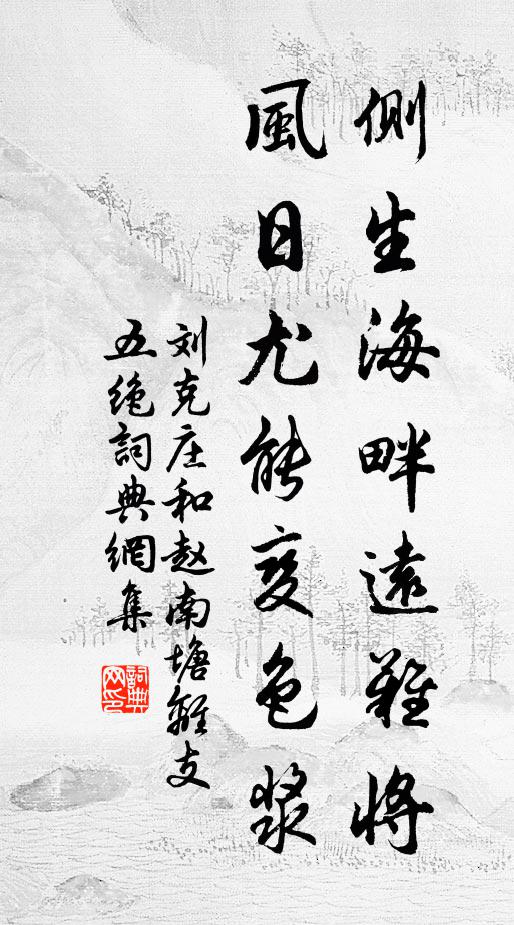 側生海畔遠難將
風日尤能變色漿
刘克庄和赵南塘離支
五绝詞典網集
詞典网印